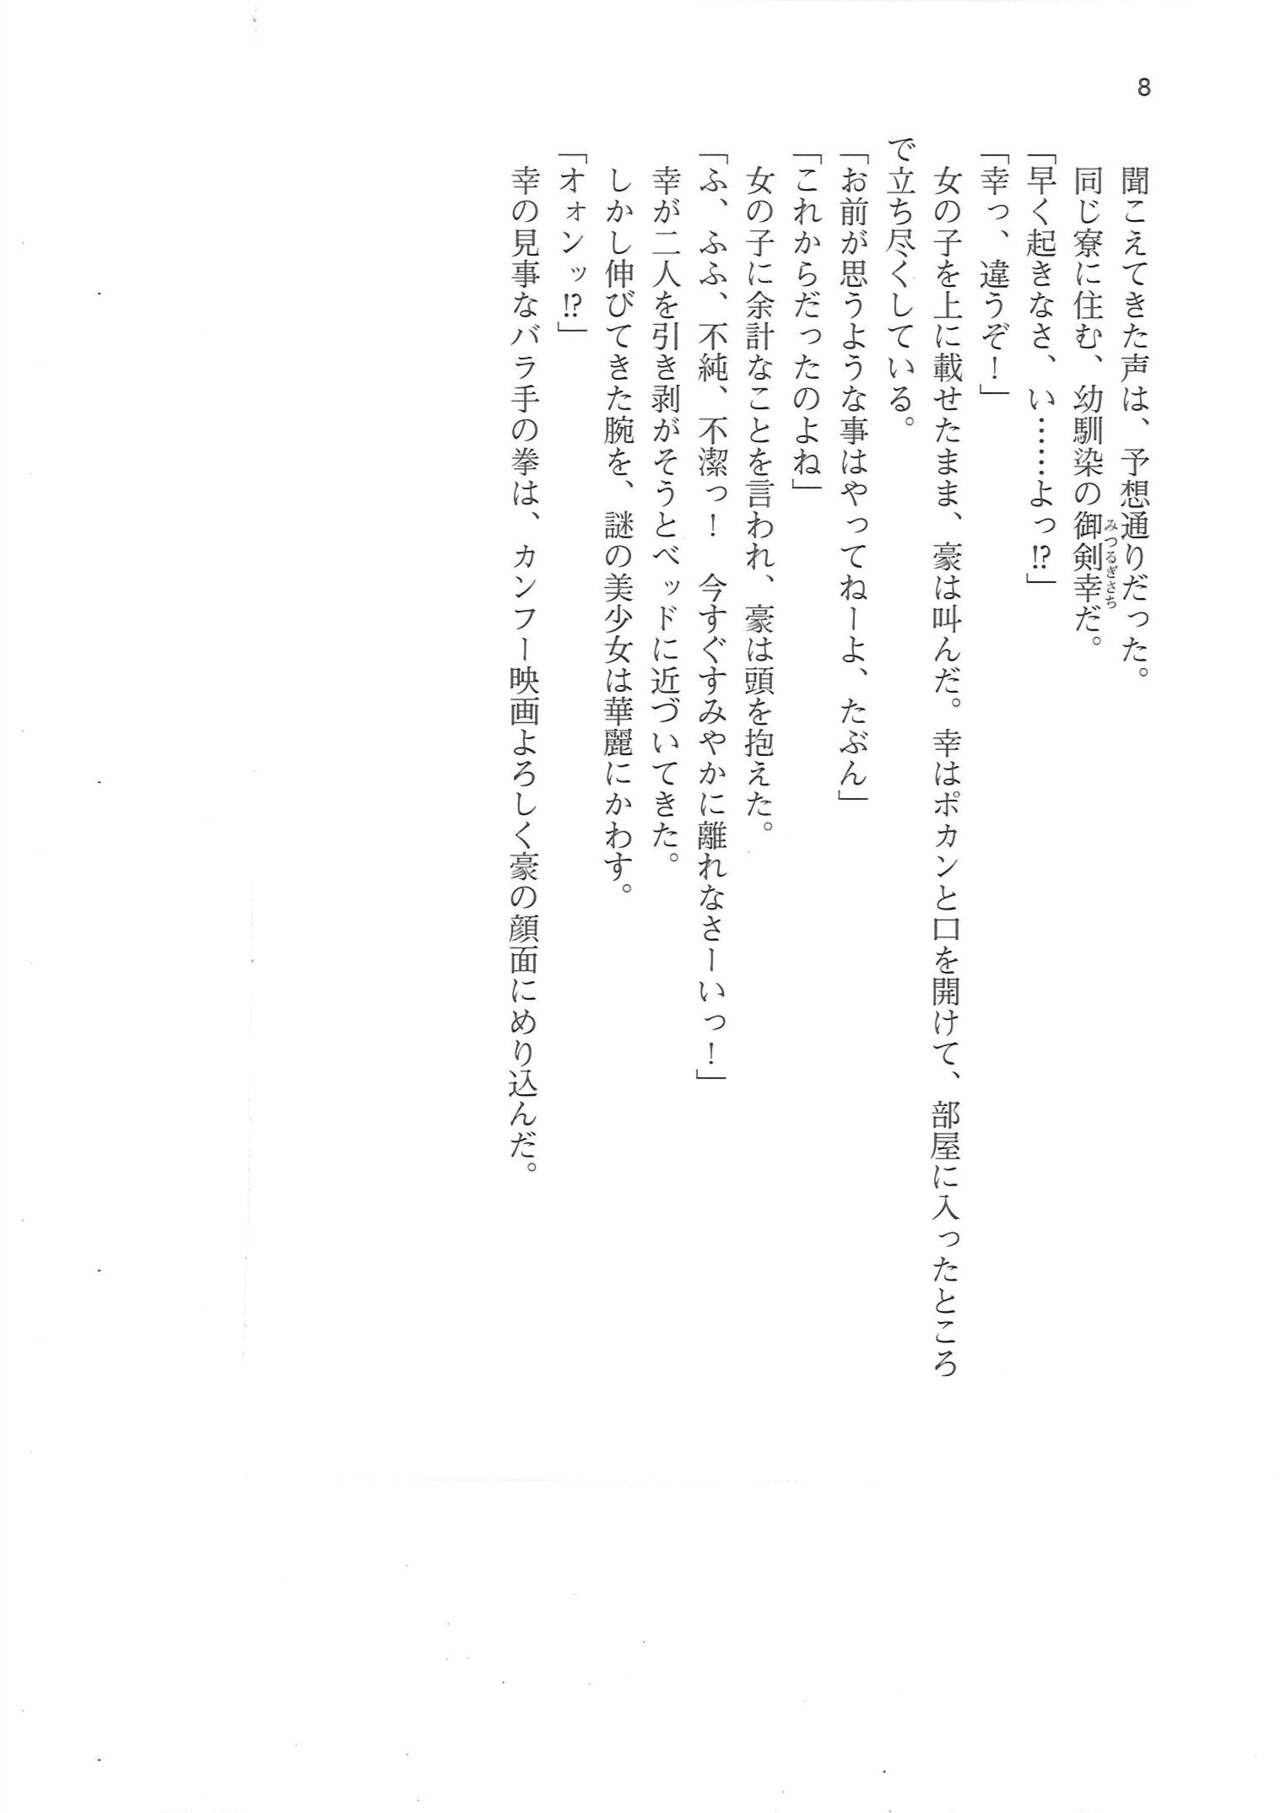 8
聞こえてきた声は、予想通りだった。
同じ寮に住む、幼馴染の御剣幸だ。
みつるぎさち
「早く起きなさ、い……よっ!?」
「幸っ、違うぞ！」
女の子を上に載せたまま、豪は叫んだ。幸はポカンと口を開けて、部屋に入ったところ
で立ち尽くしている。
「お前が思うような事はやってねーよ、たぶん」
「これからだったのよね」
女の子に余計なことを言われ、豪は頭を抱えた。
「ふ、ふふ、不純、不潔っ！　今すぐすみやかに離れなさーいっ！」
幸が二人を引き剥がそうとベッドに近づいてきた。
しかし伸びてきた腕を、謎の美少女は華麗にかわす。
「オォンッ!?」
幸の見事なバラ手の拳は、カンフー映画よろしく豪の顔面にめり込んだ。